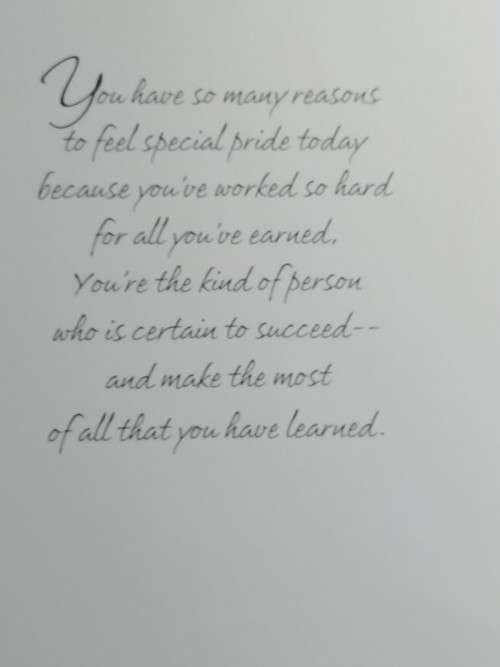 You have so many reasons
to feel special pride today
because you've worked so hard
for all you've earned.
You're the kind of person
who is certain to succeed--
and make the most
of all that you have learned.